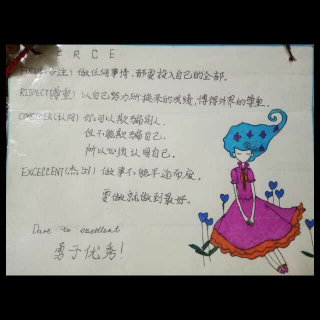 ERCE
FOCUS(专注): 做任何事情,都要投入自己的全部。
RESPECT(尊重) 以自己努力所换来的成绩,博得外界的尊重。
CONSIDER(认同) 你可以欺骗别人,
但不能欺骗自己,
所以必须认同自己。
EXCELLENT(杰出) 做事不能半途而废,
要做就做到最好。
Dare to excellent
勇于优秀!